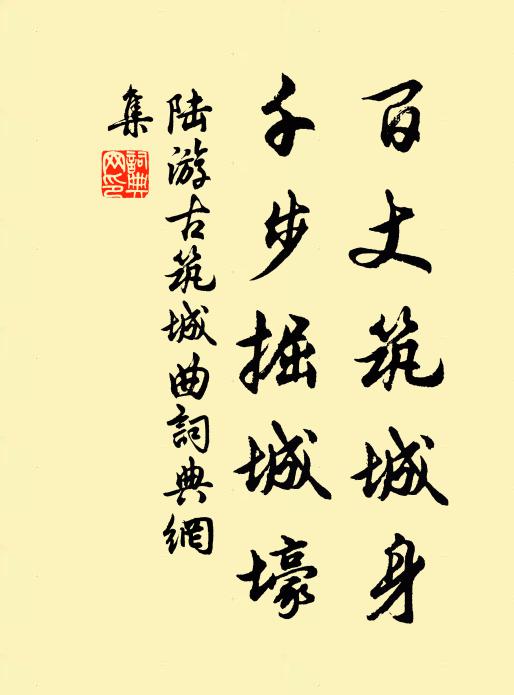 百丈筑城身
千步掘城壕
陆游古筑城曲詞典網
集
詞典
网印